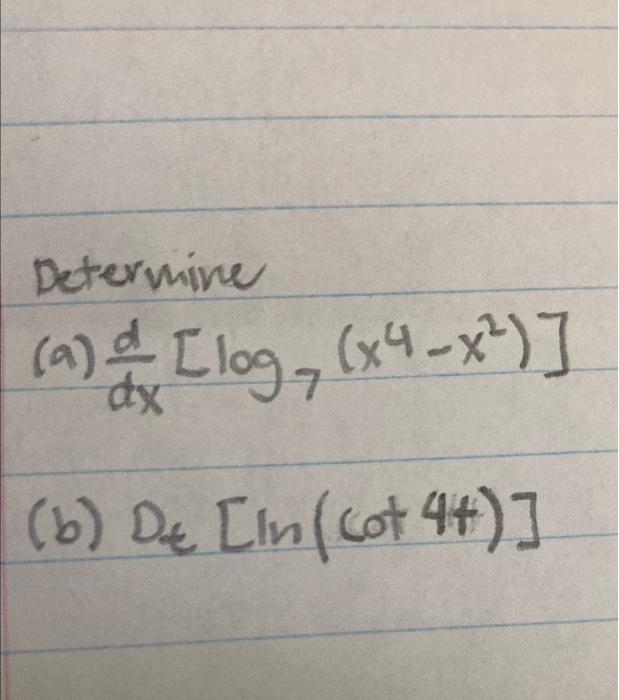 Determine
(a) d/dx [log₇ (x⁴-x²)]
(b) Dₜ [ln(cot 4t)]